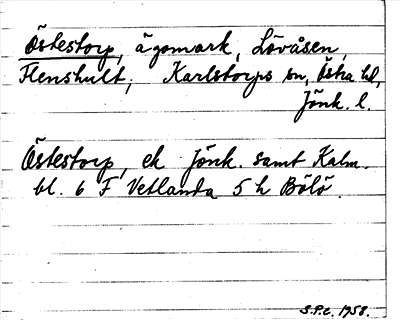 Östestorp, ägomark, Lövåsen,
Flenshult, Karlstorps sn, Östra hd,
Jönk. l.
Östestorp, ek Jönk. samt Kalm.
bl. 6 F Vetlanda 5 h Bölö.
S.P.c. 1958.